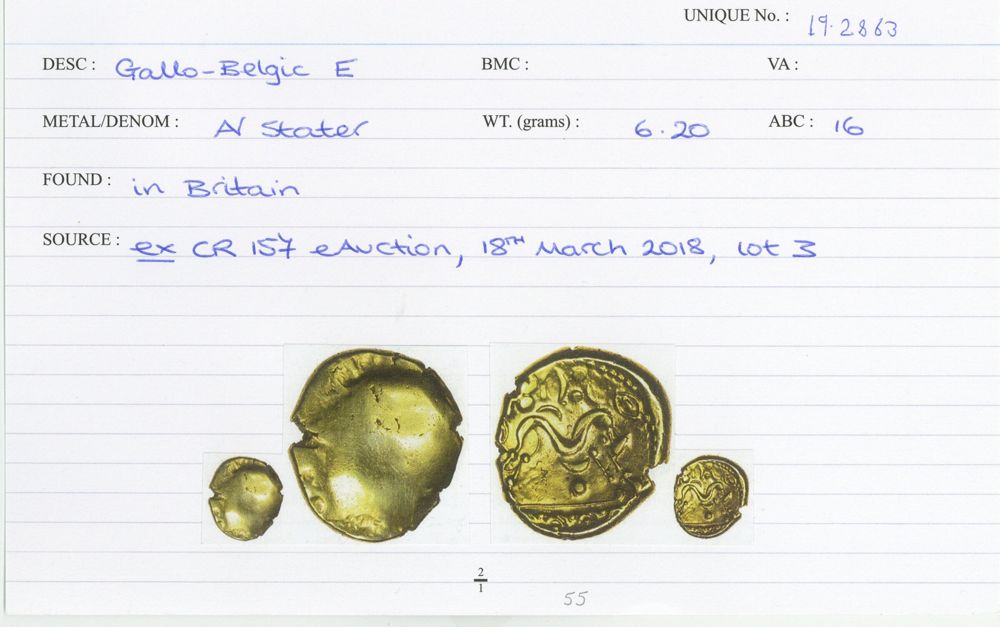 UNIQUE No. : 19.2863
DESC : Gallo-Belgic E BMC : VA :
METAL/DENOM : AV Stater WT. (grams) : 6.20 ABC : 16
FOUND : in Britain
SOURCE : ex CR 157 eAuction, 18TH March 2018, lot 3
2
1
55